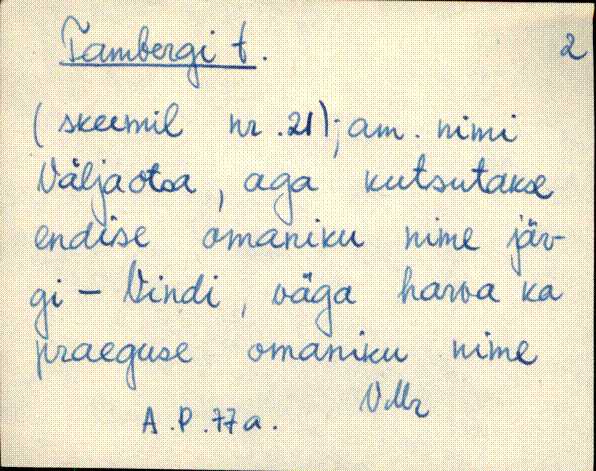 Tambergi t. 2
(skeemil nr. 21); am. nimi
Väljaotsa, aga kutsutakse
endise omaniku nime jär-
gi – Vindi, väga harva ka
praeguse omaniku nime
A.P. 77a. VMr